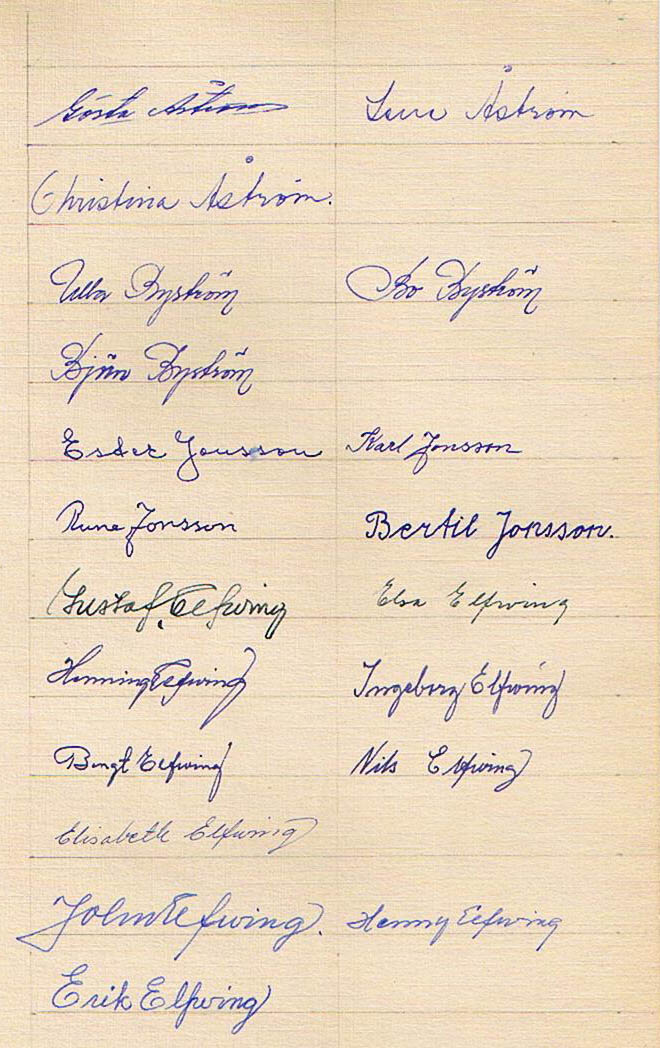 Gösta Åström Lena Åström
Christina Åström.
Ulla Byström Bo Byström
Björn Byström
Ester Jonsson Karl Jonsson
Rune Jonsson Bertil Jonsson.
Gustaf Elfwing Elsa Elfwing
Henning Elfwing Ingeborg Elfwing
Bengt Elfwing Nils Elfwing
Elisabeth Elfwing
John Elfwing. Henny Elfwing
Erik Elfwing